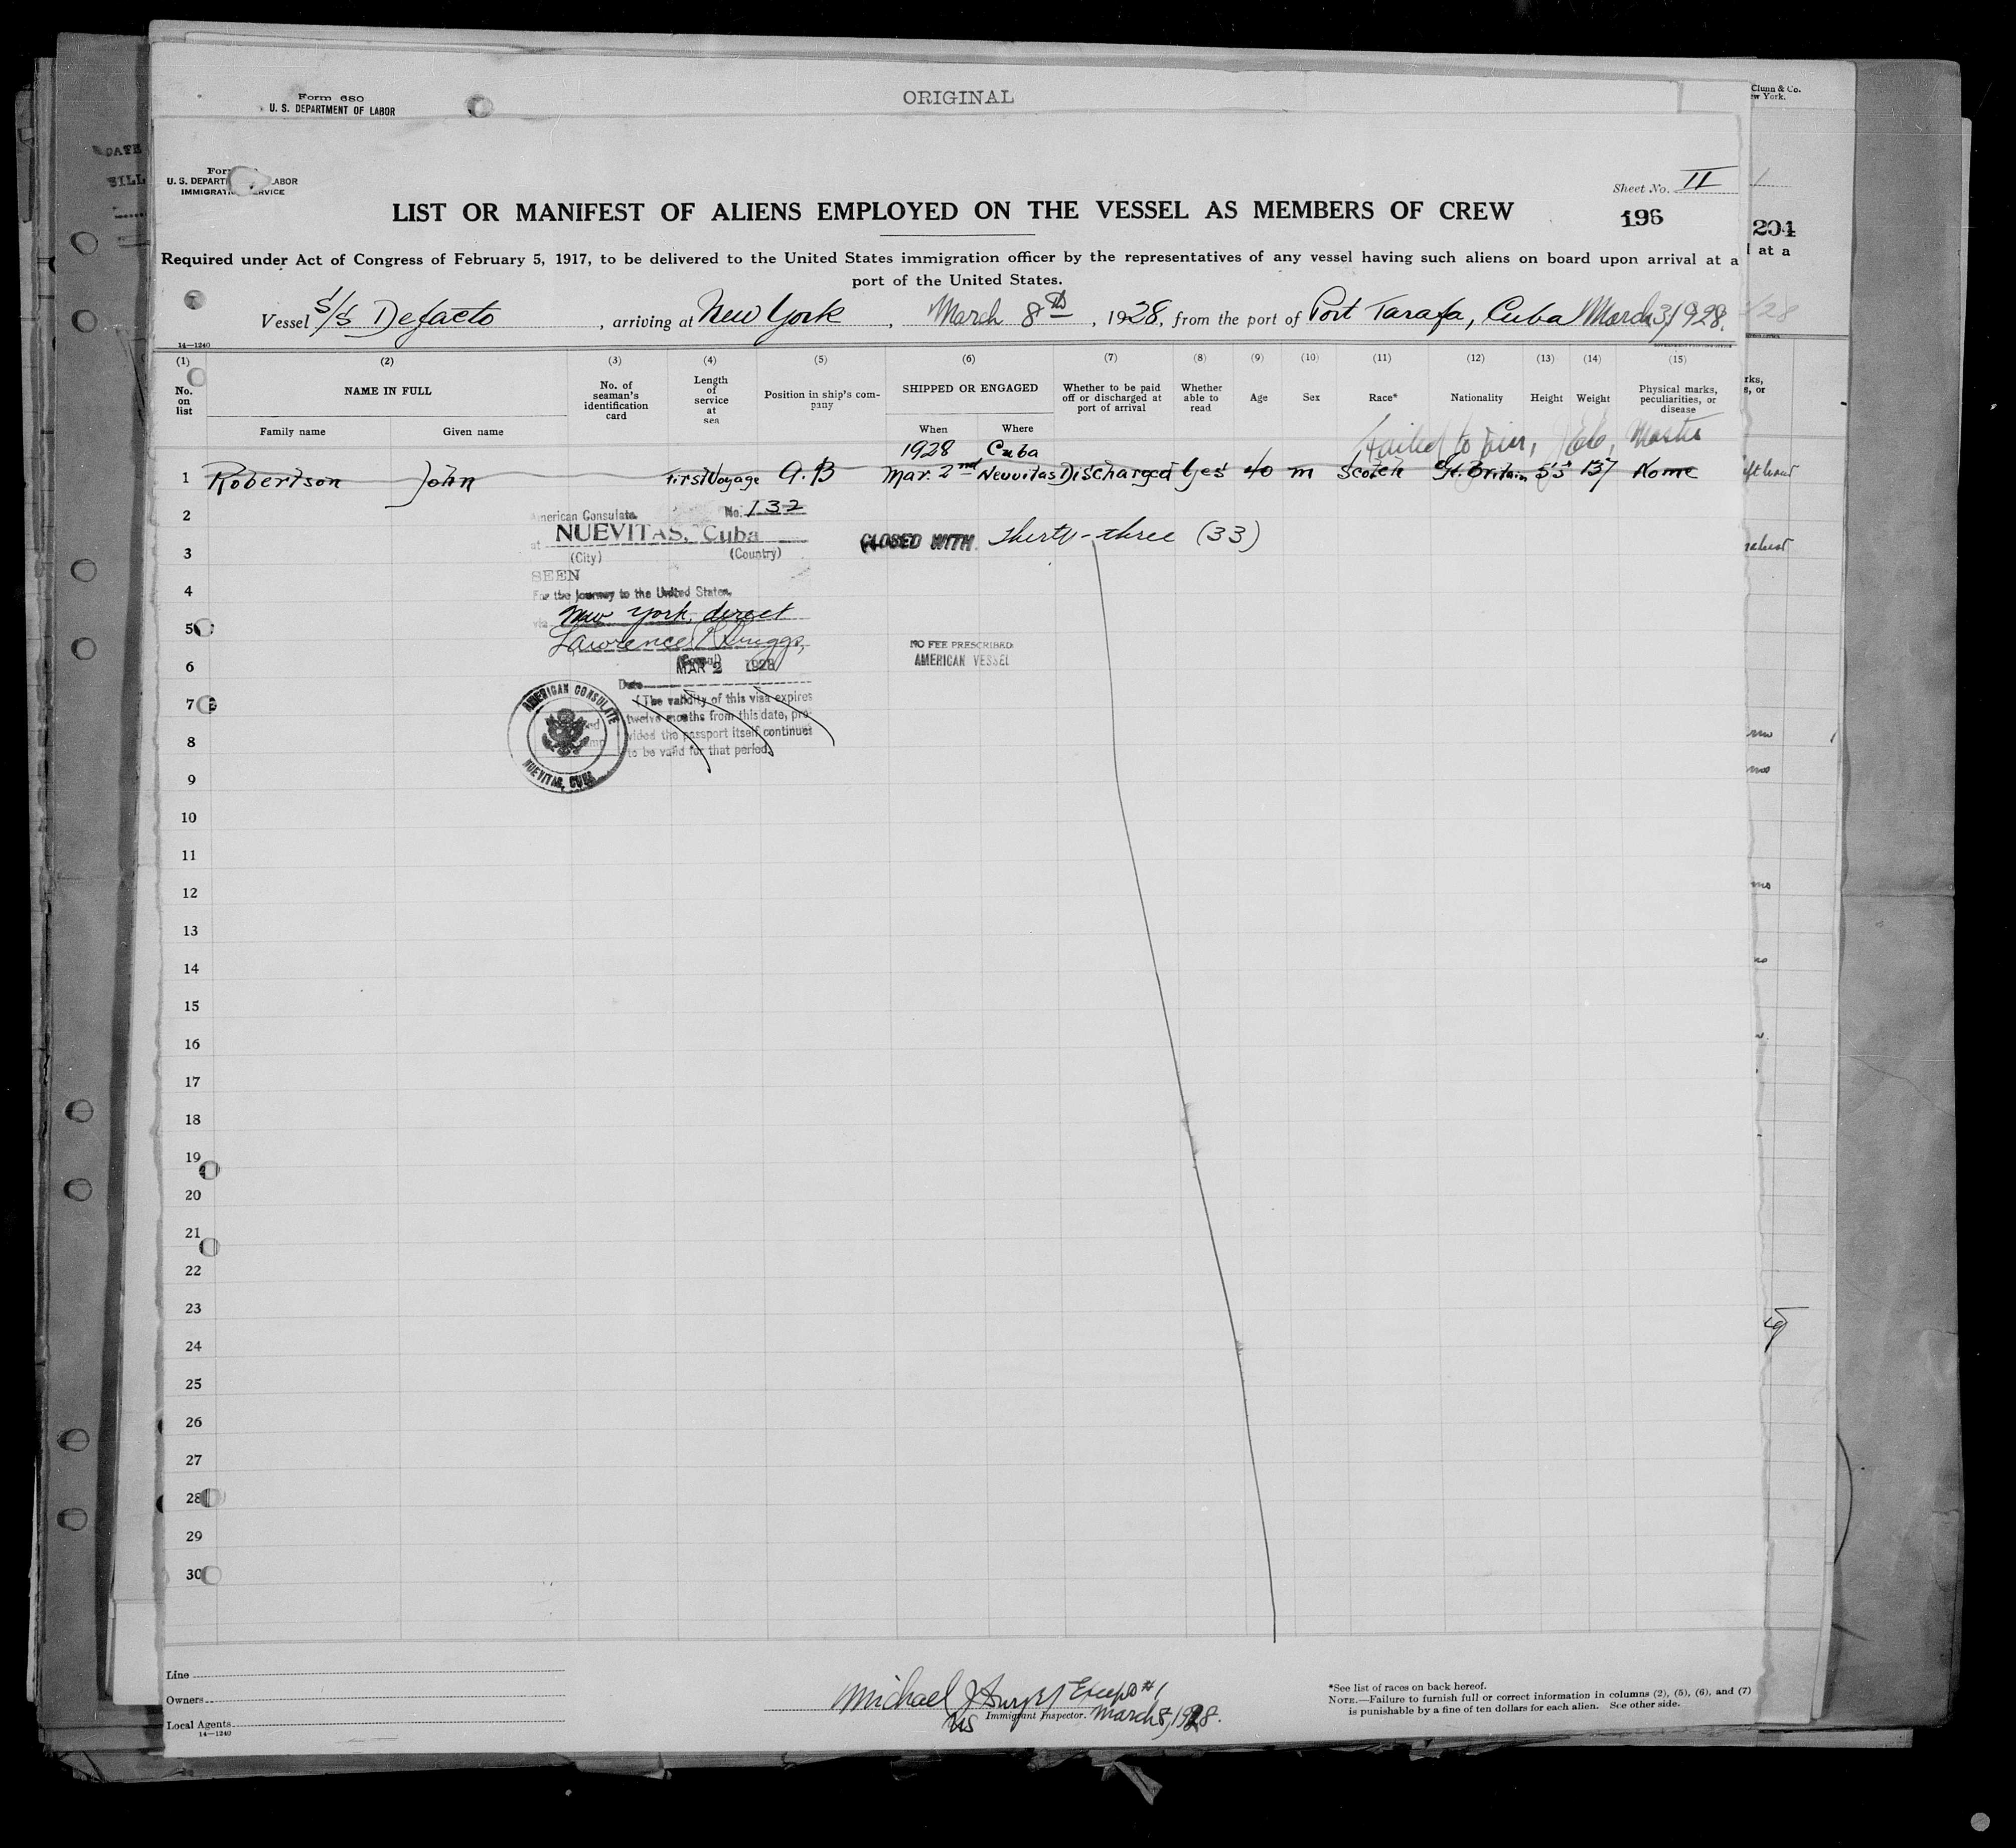 Form 680
U. S. DEPARTMENT OF LABOR
ORIGINAL
Clunn & Co.
ew York.
DATE
SILL
Form
U. S. DEPARTM LABOR
IMMIGRATI RVICE
Sheet No. II
1
LIST OR MANIFEST OF ALIENS EMPLOYED ON THE VESSEL AS MEMBERS OF CREW
196
204
Required under Act of Congress of February 5, 1917, to be delivered to the United States immigration officer by the representatives of any vessel having such aliens on board upon arrival at a
port of the United States.
l at a
Vessel S/S Defacto, arriving at New York, March 8th, 1928, from the port of Port Tarafa, Cuba March 3, 1928.
/28
14—1240
(1) (2) (3) (4) (5) (6) (7) (8) (9) (10) (11) (12) (13) (14) (15)
No. on list
NAME IN FULL
Family name
Given name
No. of seaman's identification card
Length of service at sea
Position in ship's company
SHIPPED OR ENGAGED
When
Where
Whether to be paid off or discharged at port of arrival
Whether able to read
Age
Sex
Race*
Nationality
Height
Weight
Physical marks, peculiarities, or disease
rks,
s, or
1928 Cuba
Failed to join, Master
1 Robertson John First Voyage A.B Mar. 2nd Neuvitas Discharged Yes 40 m Scotch Gt. Britain 5'5" 137 None
2
American Consulate No. 132
at NUEVITAS, Cuba
(City) (Country)
CLOSED WITH Thirty-three (33)
3
SEEN
4
For the journey to the United States,
via New York, direct
5
Lawrence P. Briggs,
NO FEE PRESCRIBED
AMERICAN VESSEL
6
(Consul)
MAR 2 1928
Date
7
(The validity of this visa expires
twelve months from this date, pro-
vided the passport itself continues
to be valid for that period.
AMERICAN CONSULATE
NUEVITAS, CUBA
8
9
10
11
12
13
14
15
16
17
18
19
20
21
22
23
24
25
26
27
28
29
30
Line
Owners
Local Agents
14—1240
Michael J. Except #1
US Immigrant Inspector. March 8, 1928.
*See list of races on back hereof.
NOTE.—Failure to furnish full or correct information in columns (2), (5), (6), and (7)
is punishable by a fine of ten dollars for each alien. See other side.